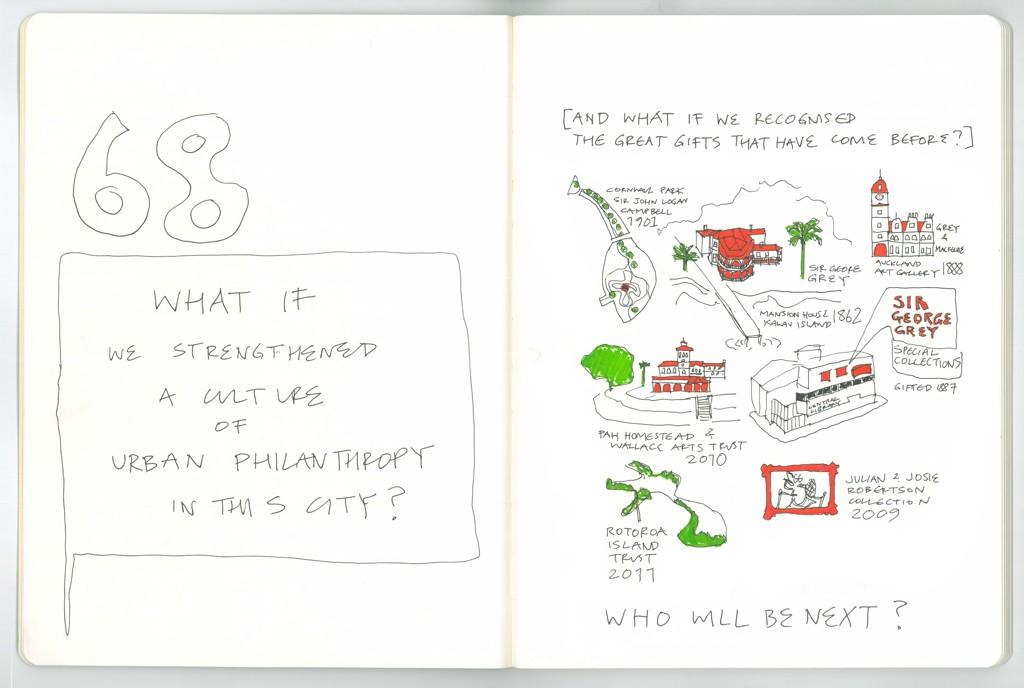 68
WHAT IF
WE STRENGTHENED
A CULTURE
OF
URBAN PHILANTHROPY
IN THIS CITY?
[AND WHAT IF WE RECOGNISED
THE GREAT GIFTS THAT HAVE COME BEFORE?]
CORNWALL PARK
SIR JOHN LOGAN
CAMPBELL
1901
SIR GEORE
GREY
MANSION HOUSE 1862
KAWAU ISLAND
GREY
&
MACKELVIE
AUCKLAND
ART GALLERY 1888
SIR
GEORGE
GREY
SPECIAL
COLLECTIONS
GIFTED 1887
CENTRAL
LIBRARY
PAH HOMESTEAD &
WALLACE ARTS TRUST
2010
ROTOROA
ISLAND
TRUST
2011
JULIAN & JOSIE
ROBERTSON
COLLECTION
2009
WHO WILL BE NEXT?